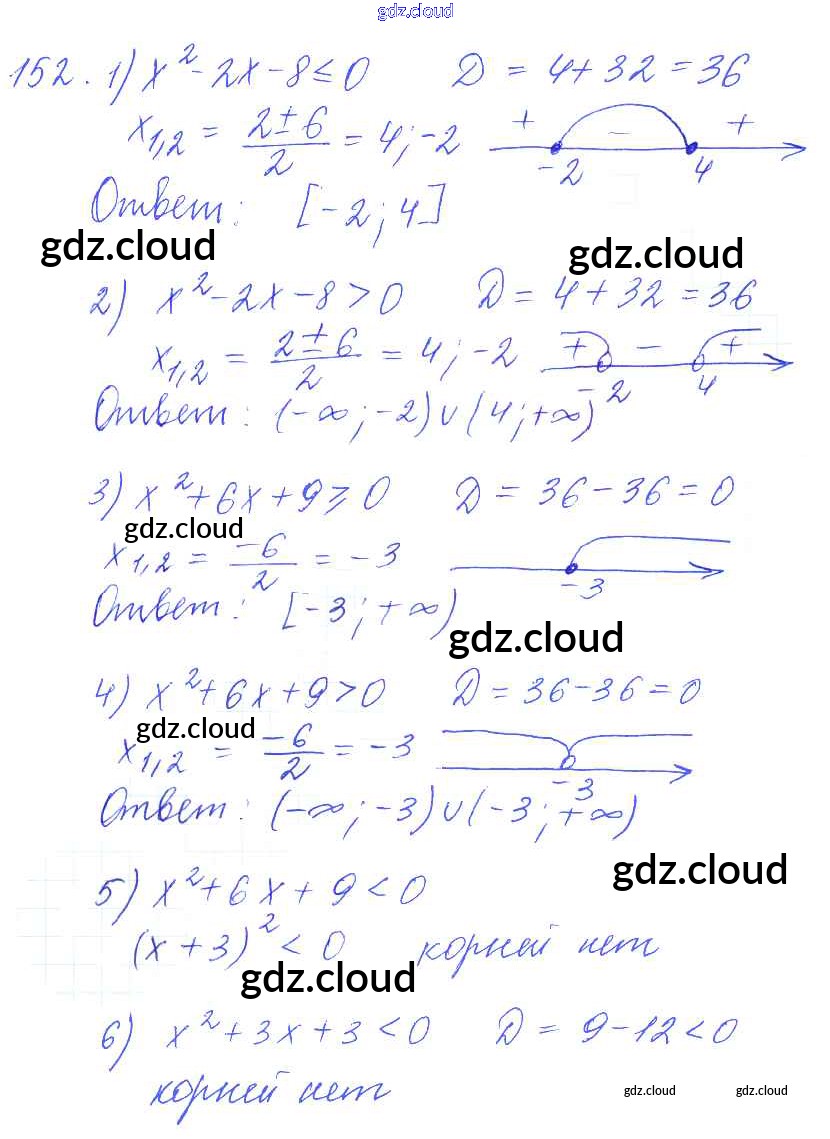 gdz.cloud
152. 1) x² - 2x - 8 ≤ 0 D = 4 + 32 = 36
x₁,₂ = (2 ± 6)/2 = 4; -2 + - + -2 4
Ответ: [-2; 4]
gdz.cloud gdz.cloud
2) x² - 2x - 8 > 0 D = 4 + 32 = 36
x₁,₂ = (2 ± 6)/2 = 4; -2 + - + -2 4
Ответ: (-∞; -2) ∪ (4; +∞)
3) x² + 6x + 9 ≥ 0 D = 36 - 36 = 0
gdz.cloud
x₁,₂ = -6/2 = -3 -3
Ответ: [-3; +∞)
gdz.cloud
4) x² + 6x + 9 > 0 D = 36 - 36 = 0
gdz.cloud
x₁,₂ = -6/2 = -3 -3
Ответ: (-∞; -3) ∪ (-3; +∞)
gdz.cloud
5) x² + 6x + 9 < 0
(x + 3)² < 0 корней нет
gdz.cloud
6) x² + 3x + 3 < 0 D = 9 - 12 < 0
корней нет
gdz.cloud gdz.cloud